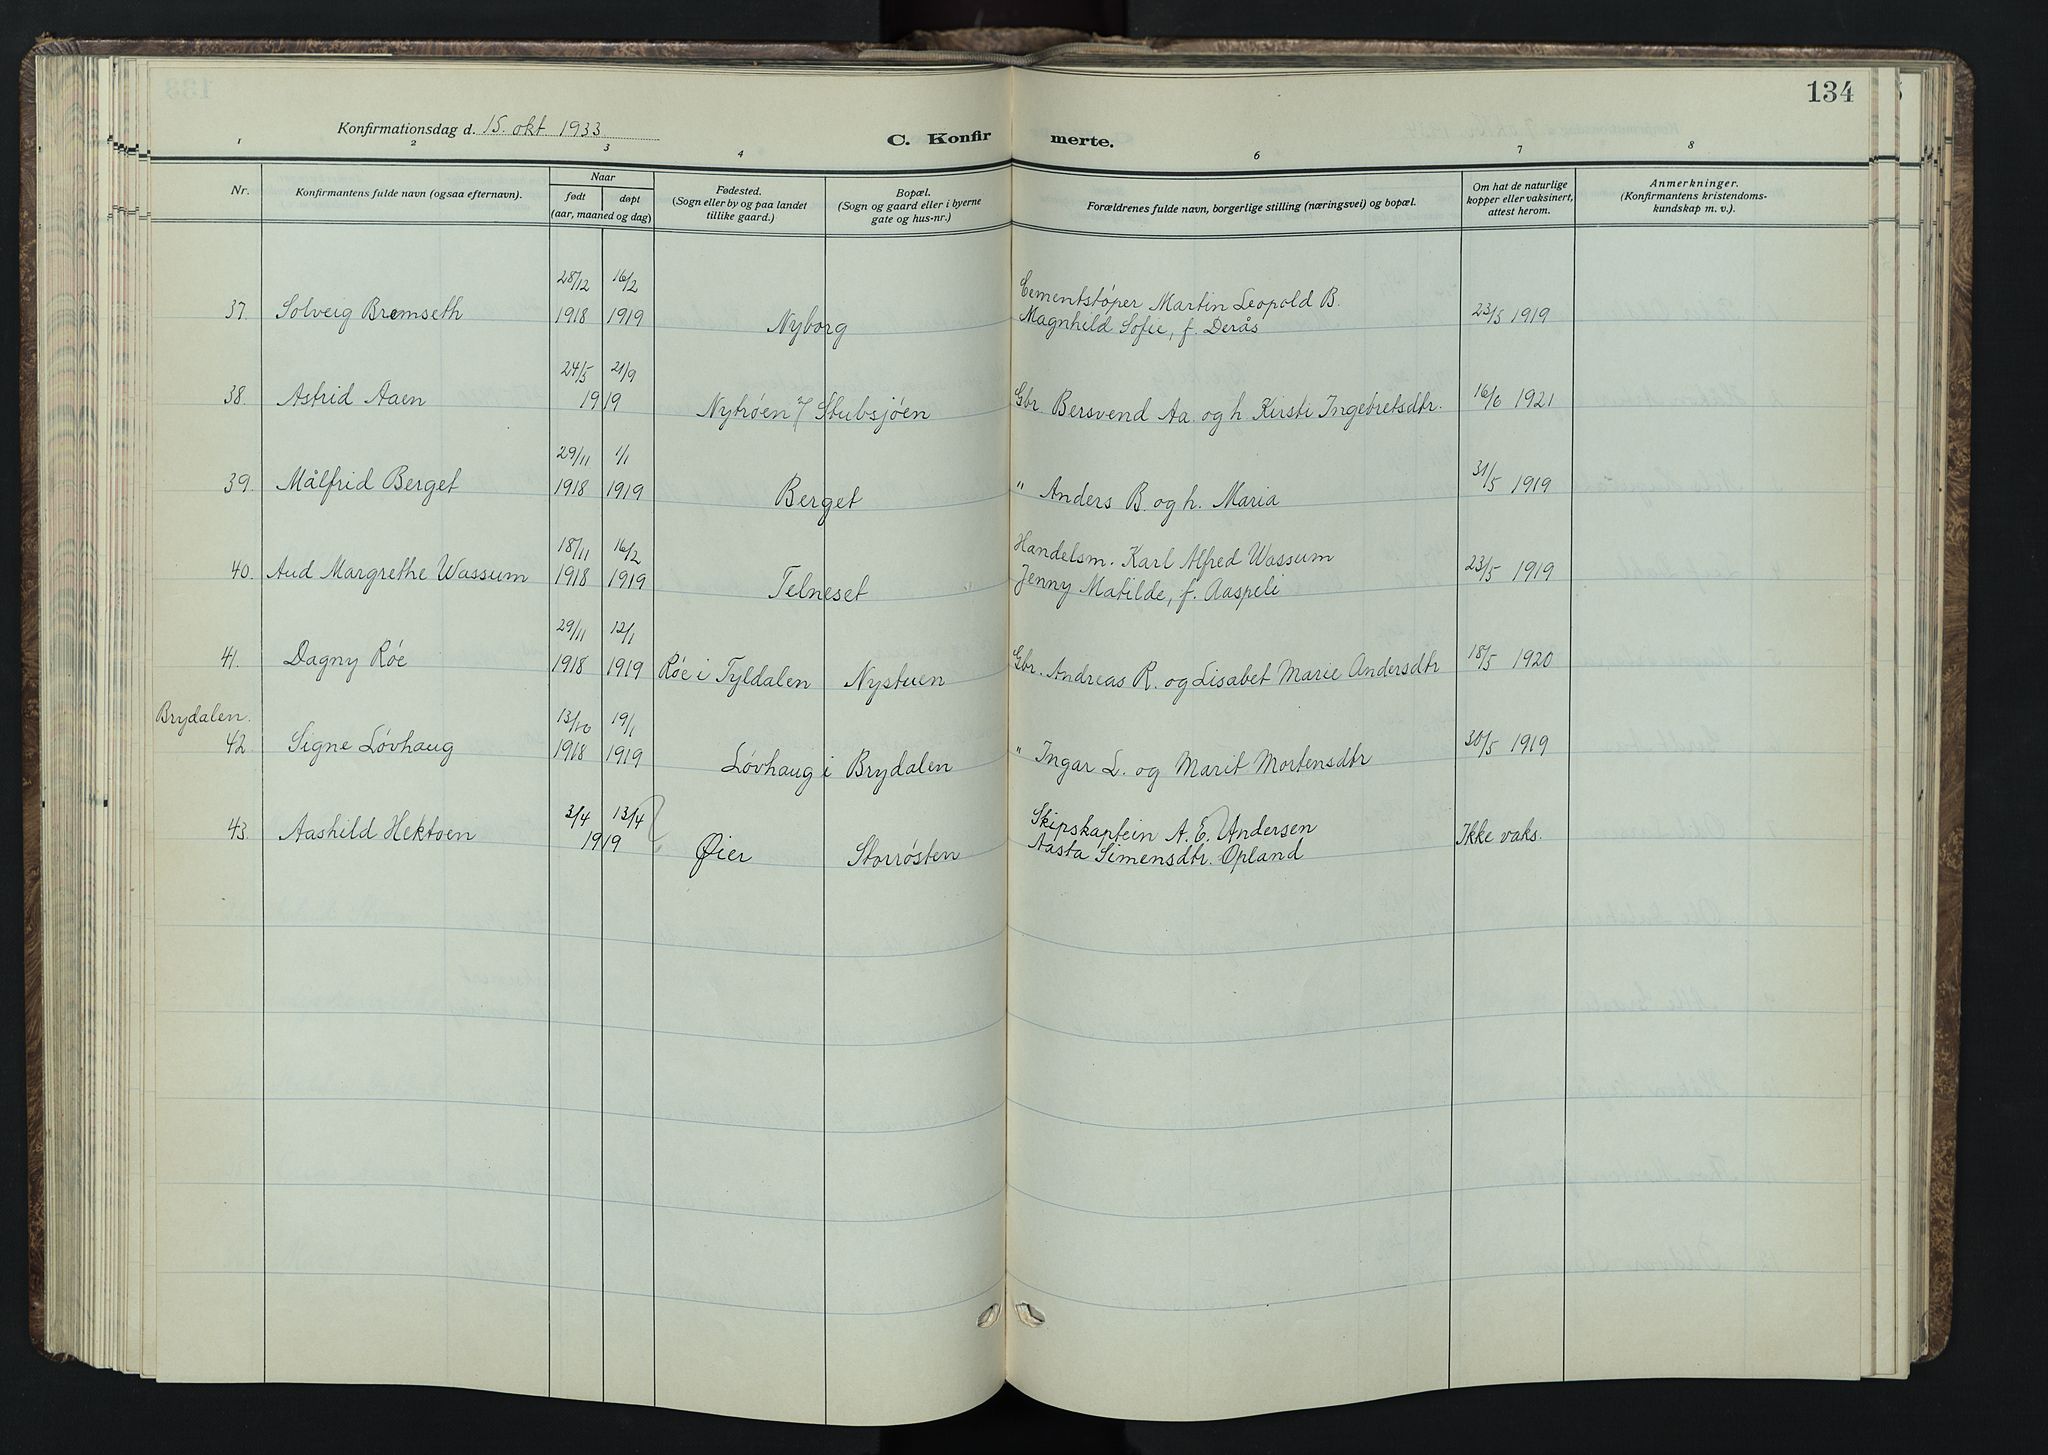 134
Konfirmationsdag d. 15. okt. 1933.
C. Konfirmerte.
1 2 3 4 6 7 8
Nr.
Konfirmantens fulde navn (ogsaa efternavn).
Naar
født døpt
(aar, maaned og dag)
Fødested.
(Sogn eller by og paa landet
tillike gaard.)
Bopæl.
(Sogn og gaard eller i byerne
gate og hus-nr.)
Forældrenes fulde navn, borgerlige stilling (næringsvei) og bopæl.
Om hat de naturlige
kopper eller vaksinert,
attest herom.
Anmerkninger.
(Konfirmantens kristendoms-
kundskap m. v.).
28/12 16/2
37. Solveig Bremseth 1918 1919 Nyborg
Cementstøper Martin Leopold B.
Magnhild Sofie, f. Derås
23/5 1919
24/5 21/9
38. Astrid Aaen 1919 Nytrøen v/ Stubsjøen Gbr. Bersvend Aa. og h. Kirsti Ingebretsdtr. 16/6 1921
29/11 1/1
39. Målfrid Berget 1918 1919 Berget " Anders B. og h. Maria 31/5 1919
18/11 16/2
40. Aud Margrethe Wassum 1918 1919 Telneset
Handelsm. Karl Alfred Wassum
Jenny Matilde, f. Aaspeli
23/5 1919
29/11 12/1
41. Dagny Røe 1918 1919 Røe i Tyldalen Nystuen Gbr. Andreas R. og Lisabet Marie Andersdtr 18/5 1920
Brydalen. 13/10 19/1
42. Signe Løvhaug 1918 1919 Løvhaug i Brydalen " Ingar L. og Marit Mortensdtr 30/5 1919
3/4 13/4
43. Aashild Hektoen 1919 Øier Storrøsten
Skipskaptein A. E. Andersen
Aasta Simensdtr. Opland
Ikke vaks.